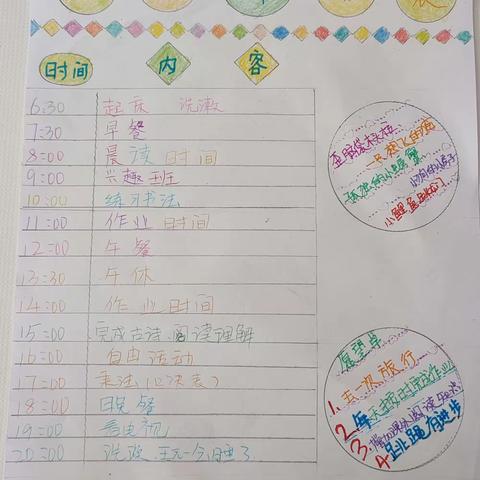 时间 内容
6:30 起床 洗漱
7:30 早餐
8:00 晨读时间
9:00 兴趣班
10:00 练习书法
11:00 作业时间
12:00 午餐
13:30 午休
14:00 作业时间
15:00 完成古诗阅读理解
16:00 自由活动
17:00 乘法口决表
18:00 晚餐
19:00 看电视
20:00 洗澡
歪脑袋木头桩
一只想飞的猫
孤独的小螃蟹
小鲤鱼跳龙门
愿望单
1. 去一次旅行
2. 每天按时完成作业
3. 增加课外阅读
4 跳绳有进步